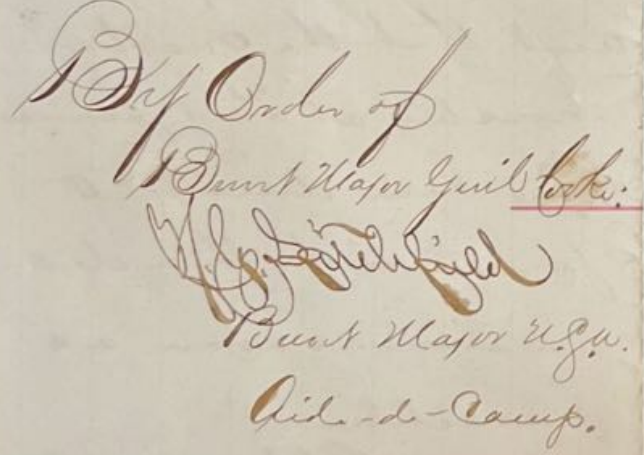 By Order of
Brevt Major Genl Cooke:
Litchfield
Brevt Major U.S.A.
Aid-de-Camp.